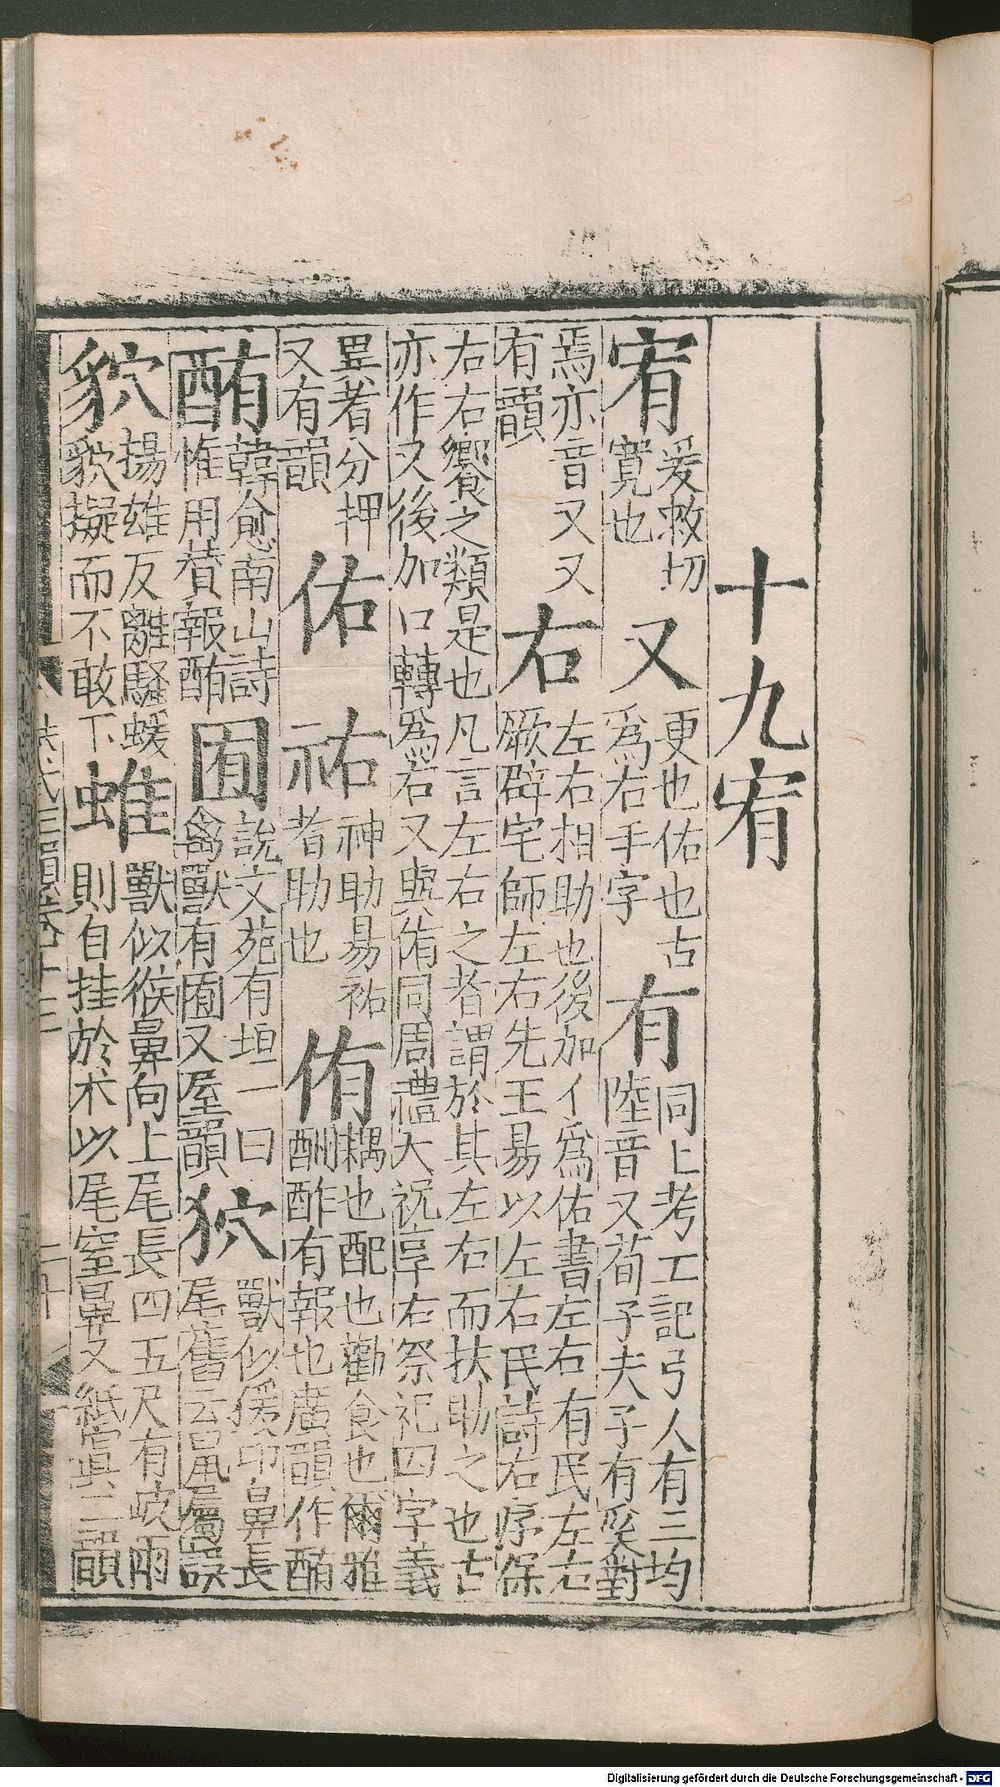 十九宥
宥爰救切寬也又更也佑也古爲右手字有同上考工記弓人有三均陸音又荀子夫子有奚對
焉亦音又又有韻右左右相助也後加亻爲佑書左右有民左右厥辟宅師左右先王易以左右民詩右序保
右右饗之類是也凡言左右之者謂於其左右而扶助之也古亦作又後加口轉爲右又與侑同周禮大祝享右祭祀四字義
異者分押又有韻佑祐神助易祐者助也侑耦也配也勸食也爾雅酬酢有報也廣韻作酭
酭韓愈南山詩惟用贊報酭囿說文苑有垣一曰禽獸有囿又屋韻狖獸似猨卬鼻長尾舊云鼠屬誤
貁揚雄反離騷蝯貁擬而不敢下蜼獸似猴鼻向上尾長四五尺有岐雨則自挂於木以尾窒鼻又紙寘二韻
洪武正韻卷十三 二十
Digitalisierung gefördert durch die Deutsche Forschungsgemeinschaft - DFG